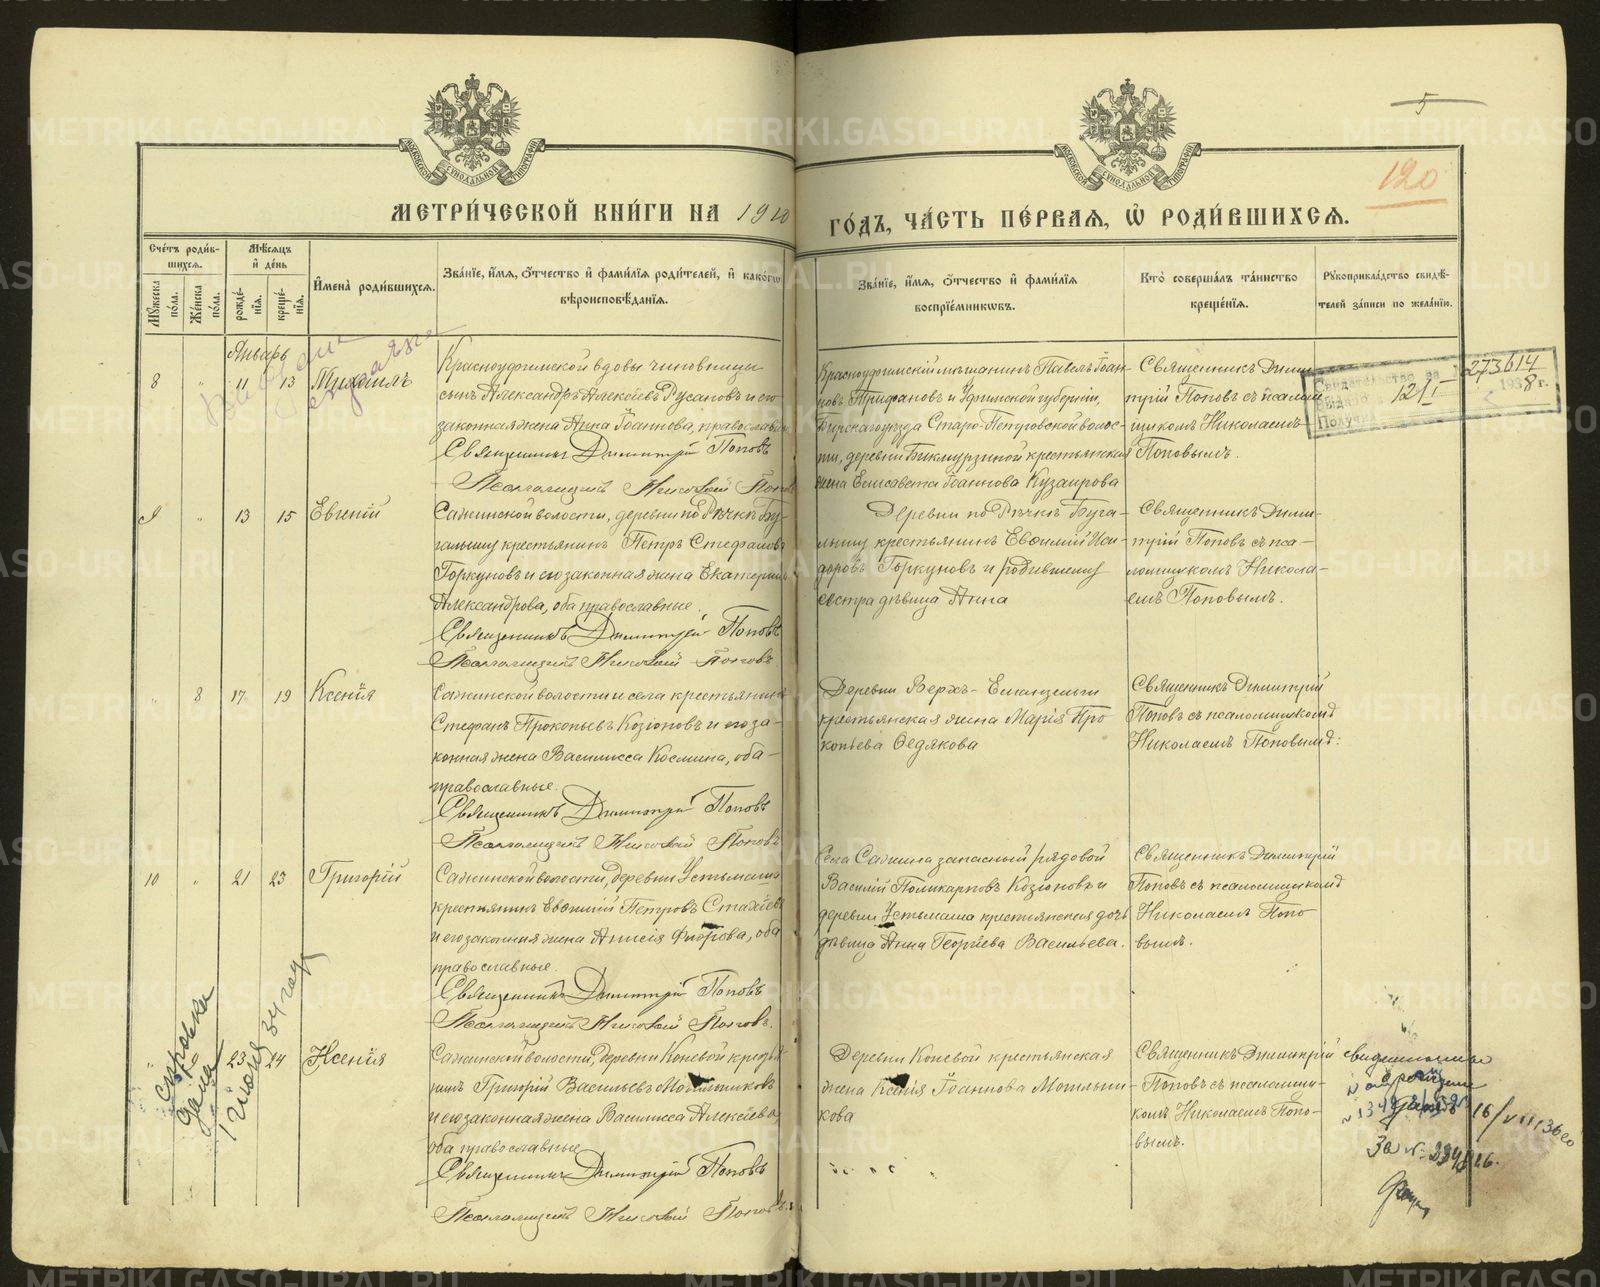 5
120
МЕТРИ́ЧЕСКОЙ КНИ́ГИ НА 1910
ГО́ДЪ, ЧА́СТЬ ПЕ́РВАЯ, Ѡ҆ РОДИ́ВШИХСЯ.
Сче́тъ роди́в-
шихся.
Му́жеска по́ла.
Же́нска по́ла.
Мѣ́сяцъ
и҆ де́нь
рожде́-
нїѧ.
креще́-
нїѧ.
И҆мена̀ роди́вшихся.
Зва́нїе, и҆́мя, ѻ҆́тчество и҆ фами́лїя роди́телей, и҆ како́гѡ
вѣроисповѣ́данїя.
Зва́нїе, и҆́мя, ѻ҆́тчество и҆ фами́лїя
воспрїе́мникѡвъ.
Кто̀ соверша́лъ та́инство
креще́нїя.
Рꙋкоприкла́дство свидѣ́-
телей за́писи по жела́нїю.
Январь
8 " 11 13 Михаилъ
Красноуфимской вдовы чиновницы
сынъ Александръ Алексѣевъ Русановъ и его
законная жена Анна Іоаннова, православные
Священникъ Димитрій Поповъ
Псаломщикъ Николай Поповъ
Красноуфимскій мѣщанинъ Павелъ Іоан-
новъ Трифановъ и Уфимской губерніи,
Бирскаго уѣзда Старо-Петровской волос-
ти, деревни Бикмурзиной крестьянская
жена Елисавета Іоаннова Кузаирова
Священникъ Дими-
трій Поповъ съ псалом-
щикомъ Николаемъ
Поповымъ.
Свидетельство за № 273614
Выдано 12/I 1938 г.
9 " 13 15 Евгеній
Сажинской волости, деревни по Рѣчкѣ Бу-
галышу крестьянинъ Петръ Стефановъ
Горкуновъ и его законная жена Екатерина
Александрова, оба православные.
Священникъ Димитрій Поповъ
Псаломщикъ Николай Поповъ
Деревни по Рѣчкѣ Буга-
лышу крестьянинъ Евѳимій Иси-
доровъ Горкуновъ и родившему
сестра дѣвица Анна
Священникъ Дими-
трій Поповъ съ пса-
ломщикомъ Никола-
емъ Поповымъ.
" 8 17 19 Ксенія
Сажинской волости и села крестьянинъ
Стефанъ Прокопьевъ Козіоновъ и его за-
конная жена Василисса Космина, оба
православные.
Священникъ Димитрій Поповъ
Псаломщикъ Николай Поповъ
Деревни Верхъ-
крестьянская жена Марія Про
копьева Ѳедякова
Священникъ Димитрій
Поповъ съ псаломщикомъ
Николаемъ Поповымъ:
10 " 21 23 Григорій
Сажинской волости, деревни Устьмаша
крестьянинъ Евѳимій Петровъ Стахіевъ
и его законная жена Анисія Флорова, оба
православные.
Священникъ Димитрій Поповъ
Псаломщикъ Николай Поповъ.
Села Сажина запасный рядовой
Василій Поликарповъ Козіоновъ и
деревни Устьмаша крестьянская дочь
дѣвица Анна Георгіева Васильева.
Священникъ Димитрій
Поповъ съ псаломщикомъ
Николаемъ Попо-
вымъ.
23 24 Ксенія
Сажинской волости, деревни Коневой крестья-
нинъ Григорій Васильевъ Мотыльниковъ
и его законная жена Василисса Алексіева,
оба православные
Священникъ Димитрій Поповъ
Псаломщикъ Николай Поповъ
Деревни Коневой крестьянская
жена Ксенія Іоаннова Мотыльни-
кова
Священникъ Димитрій
Поповъ съ псаломщи-
комъ Николаемъ Попо-
вымъ.
справка
дана
1 июля 34 года
16/VIII 36
За №